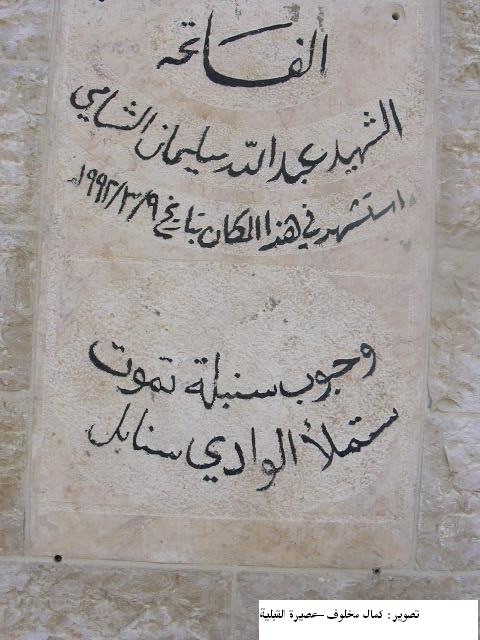 الفاتحة
الشهيد عبد الله سليمان الشامي
استشهد في هذا المكان بتاريخ ١٩٩٢/٣/٩م
وحبوب سنبلة تموت
ستملأ الوادي سنابل
تصوير: كمال مخلوف -عصيرة القبلية